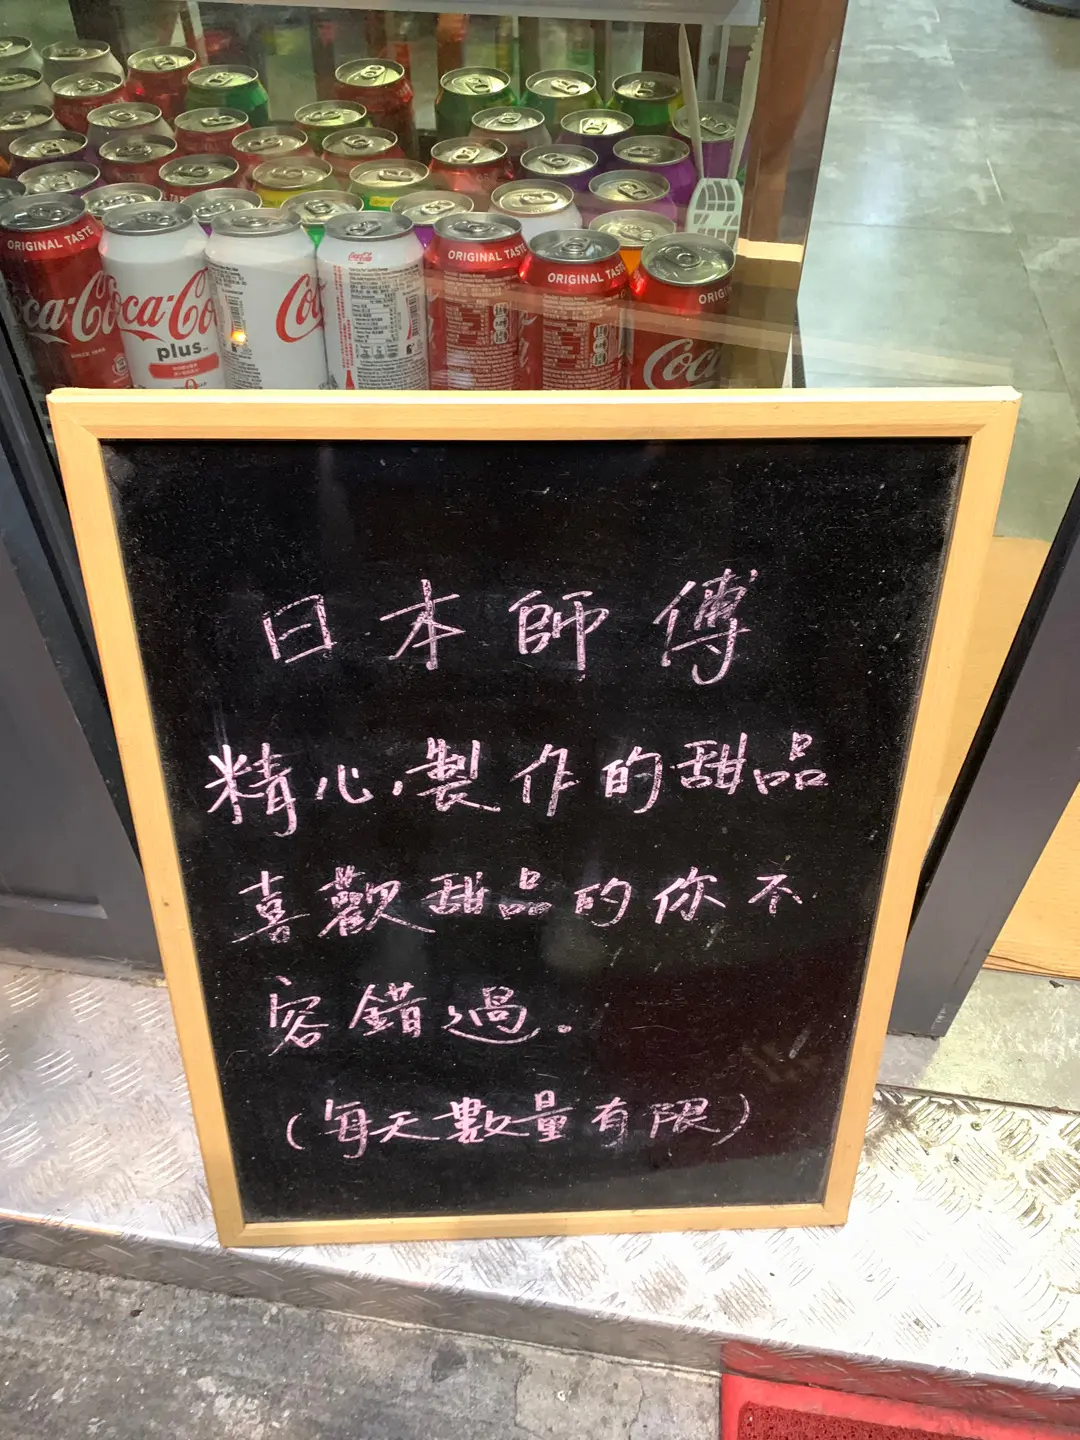 ORIGINAL TASTE
Coca-Cola
Coca-Co
plus
Col
Coca-Cola
ORIGINAL TASTE
ORIGINAL TAS
ORIGI
Coca
日本師傅
精心製作的甜品
喜歡甜品的你不
容錯過.
(每天數量有限)